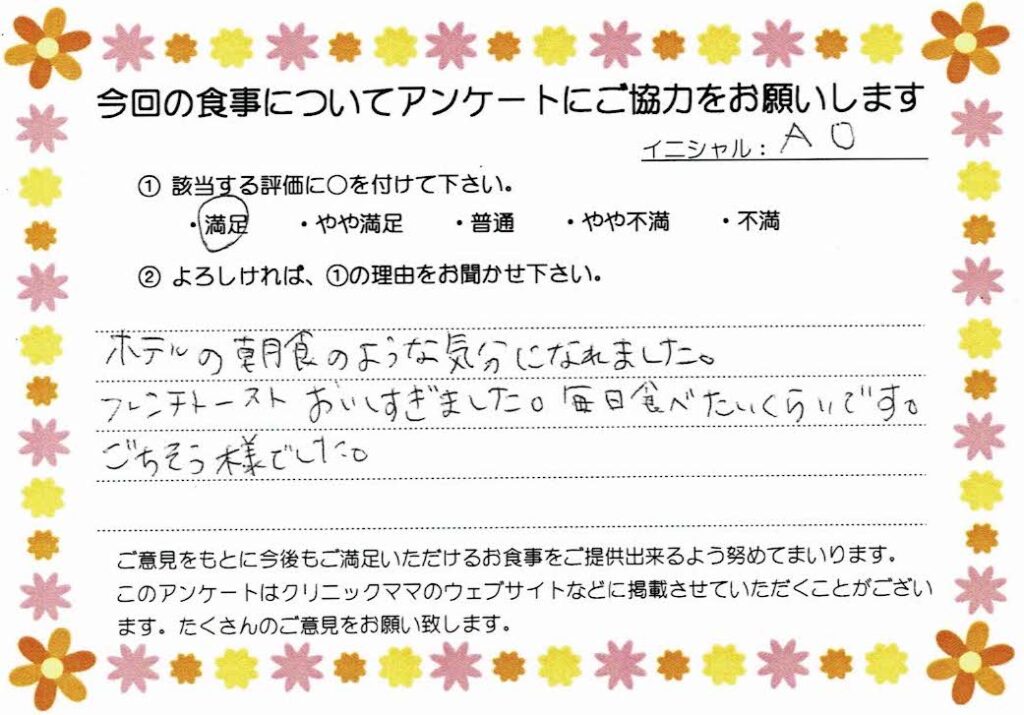 今回の食事についてアンケートにご協力をお願いします
イニシャル： A O
① 該当する評価に○を付けて下さい。
・満足 ・やや満足 ・普通 ・やや不満 ・不満
② よろしければ、①の理由をお聞かせ下さい。
ホテルの朝食のような気分になれました。
フレンチトースト おいしすぎました。毎日食べたいくらいです。
ごちそう様でした。
ご意見をもとに今後もご満足いただけるお食事をご提供出来るよう努めてまいります。
このアンケートはクリニックママのウェブサイトなどに掲載させていただくことがござい
ます。たくさんのご意見をお願い致します。